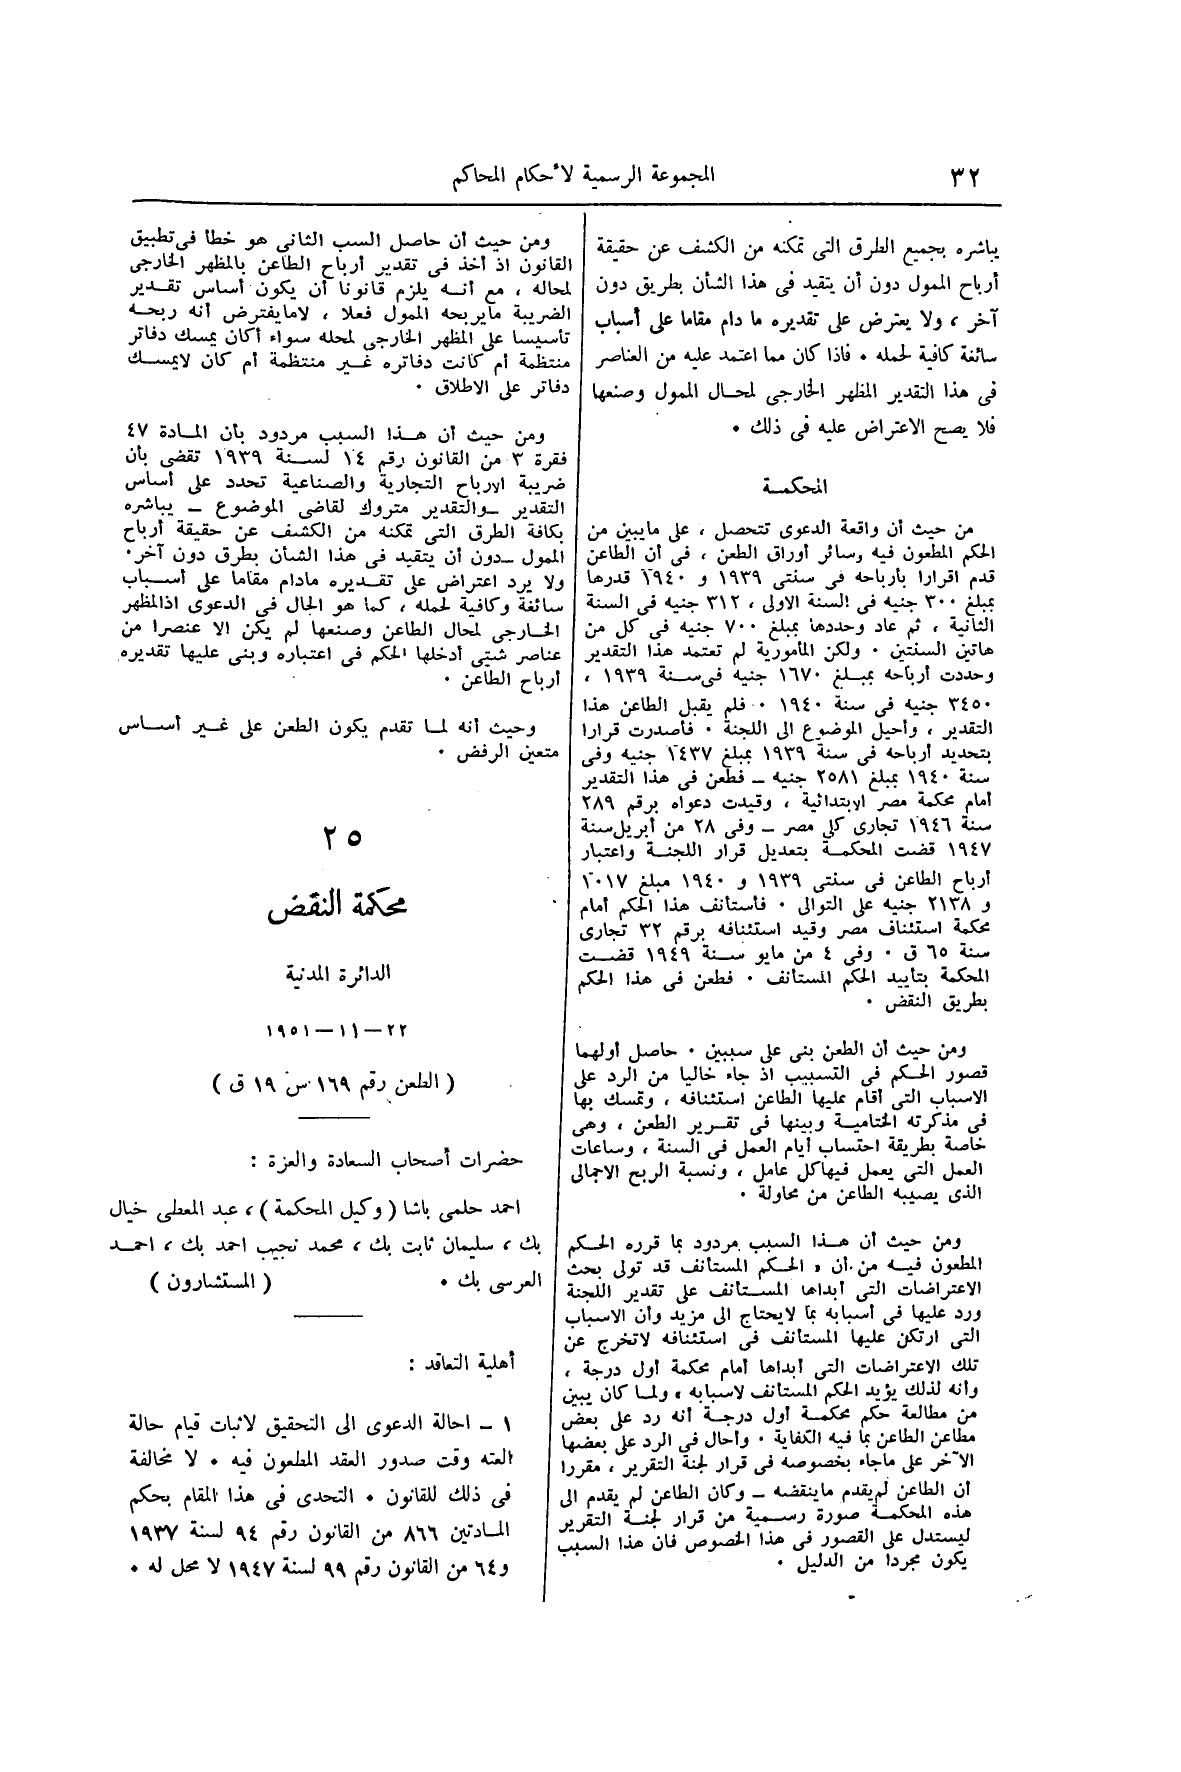 ٣٢
المجموعة الرسمية لأحكام المحاكم
يباشره بجميع الطرق التى تمكنه من الكشف عن حقيقة
أرباح الممول دون أن يتقيد فى هذا الشأن بطريق دون
آخر ، ولا يعترض على تقديره ما دام مقاما على أسباب
سائغة كافية لحمله ٠ فاذا كان مما اعتمد عليه من العناصر
فى هذا التقدير المظهر الخارجى لمحال الممول وصنعها
فلا يصح الاعتراض عليه فى ذلك ٠
المحكمة
من حيث أن واقعة الدعوى تتحصل ، على مايبين من
الحكم المطعون فيه وسائر أوراق الطعن ، فى أن الطاعن
قدم اقرارا بأرباحه فى سنتى ١٩٣٩ و ١٩٤٠ قدرها
بمبلغ ٣٠٠ جنيه فى السنة الاولى ، ٣١٢ جنيه فى السنة
الثانية ، ثم عاد وحددها بمبلغ ٧٠٠ جنيه فى كل من
هاتين السنتين ٠ ولكن المأمورية لم تعتمد هذا التقدير
وحددت أرباحه بمبلغ ١٦٧٠ جنيه فى سنة ١٩٣٩ ،
٣٤٥٠ جنيه فى سنة ١٩٤٠ ٠ فلم يقبل الطاعن هذا
التقدير ، وأحيل الموضوع الى اللجنة ٠ فأصدرت قرارا
بتحديد أرباحه فى سنة ١٩٣٩ بمبلغ ١٤٣٧ جنيه وفى
سنة ١٩٤٠ بمبلغ ٢٥٨١ جنيه ــ فطعن فى هذا التقدير
أمام محكمة مصر الابتدائية ، وقيدت دعواه برقم ٢٨٩
سنة ١٩٤٦ تجارى كلى مصر ــ وفى ٢٨ من أبريل سنة
١٩٤٧ قضت المحكمة بتعديل قرار اللجنة واعتبار
أرباح الطاعن فى سنتى ١٩٣٩ و ١٩٤٠ مبلغ ١٠١٧
و ٢١٣٨ جنيه على التوالى ٠ فأستانف هذا الحكم أمام
محكمة استئناف مصر وقيد استئنافه برقم ٣٢ تجارى
سنة ٦٥ ق ٠ وفى ٤ من مايو سنة ١٩٤٩ قضت
المحكمة بتاييد الحكم المستانف ٠ فطعن فى هذا الحكم
بطريق النقض ٠
ومن حيث أن الطعن بنى على سببين ٠ حاصل أولهما
قصور الحكم فى التسبيب اذ جاء خاليا من الرد على
الاسباب التى أقام عليها الطاعن استئنافه ، وتمسك بها
فى مذكرته الختامية وبينها فى تقرير الطعن ، وهى
خاصة بطريقة احتساب أيام العمل فى السنة ، وساعات
العمل التى يعمل فيها كل عامل ، ونسبة الربح الاجمالى
الذى يصيبه الطاعن من محاولة ٠
ومن حيث أن هذا السبب مردود بما قرره الحكم
المطعون فيه من أن « الحكم المستأنف قد تولى بحث
الاعتراضات التى أبداها المستأنف على تقدير اللجنة
ورد عليها فى أسبابه بما لايحتاج الى مزيد وأن الاسباب
التى ارتكن عليها المستأنف فى استئنافه لاتخرج عن
تلك الاعتراضات التى أبداها أمام محكمة أول درجة ،
وأنه لذلك يؤيد الحكم المستأنف لاسبابه » ولما كان يبين
من مطالعة حكم محكمة أول درجة أنه رد على بعض
مطاعن الطاعن بما فيه الكفاية ٠ وأحال فى الرد على بعضها
الآخر على ماجاء بخصوصه فى قرار لجنة التقرير ، مقررا
أن الطاعن لم يقدم ماينقضه ــ وكان الطاعن لم يقدم الى
هذه المحكمة صورة رسمية من قرار لجنة التقرير
ليستدل على القصور فى هذا الخصوص فان هذا السبب
يكون مجردا من الدليل ٠
ومن حيث أن حاصل السب الثانى هو خطأ فى تطبيق
القانون اذ أخذ فى تقدير أرباح الطاعن بالمظهر الخارجى
لمحاله ، مع أنه يلزم قانونا أن يكون أساس تقدير
الضريبة مايربحه الممول فعلا ، لامايفترض أنه ربحه
تأسيسا على المظهر الخارجى لمحله سواء أكان يمسك دفاتر
منتظمة أم كانت دفاتره غير منتظمة أم كان لايمسك
دفاتر على الاطلاق ٠
ومن حيث أن هذا السبب مردود بأن المادة ٤٧
فقرة ٣ من القانون رقم ١٤ لسنة ١٩٣٩ تقضى بأن
ضريبة الارباح التجارية والصناعية تحدد على أساس
التقدير ــ والتقدير متروك لقاضى الموضوع ــ يباشره
بكافة الطرق التى تمكنه من الكشف عن حقيقة أرباح
الممول ــ دون أن يتقيد فى هذا الشأن بطرق دون آخر ٠
ولا يرد اعتراض على تقديره مادام مقاما على أسباب
سائغة وكافية لحمله ، كما هو الحال فى الدعوى اذ المظهر
الخارجى لمحال الطاعن وصنعها لم يكن الا عنصرا من
عناصر شتى أدخلها الحكم فى اعتباره وبنى عليها تقديره
أرباح الطاعن ٠
وحيث أنه لما تقدم يكون الطعن على غير أساس
متعين الرفض ٠
٢٥
محكمة النقض
الدائرة المدنية
٢٢ – ١١ – ١٩٥١
( الطعن رقم ١٦٩ س ١٩ ق )
حضرات أصحاب السعادة والعزة :
احمد حلمى باشا ( وكيل المحكمة ) ، عبد المعطى خيال
بك ، سليمان ثابت بك ، محمد نجيب احمد بك ، احمد
العرسى بك ٠ ( المستشارون )
أهلية التعاقد :
١ ــ احالة الدعوى الى التحقيق لاثبات قيام حالة
العته وقت صدور العقد المطعون فيه ٠ لا مخالفة
فى ذلك للقانون ٠ التحدى فى هذا المقام بحكم
المادتين ٨٦٦ من القانون رقم ٩٤ لسنة ١٩٣٧
و٦٤ من القانون رقم ٩٩ لسنة ١٩٤٧ لا محل له ٠